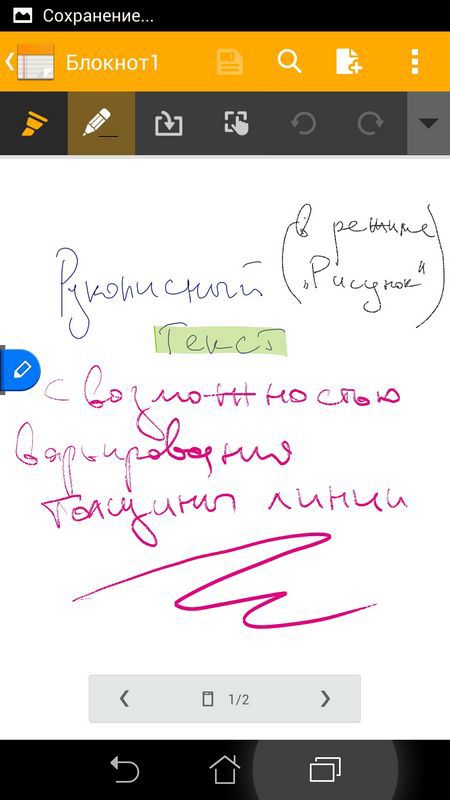 Сохранение...
Блокнот1
Рукописный
(в режиме
„Рисунок")
Текст
с возможностью
варьирования
толщины линии
1/2